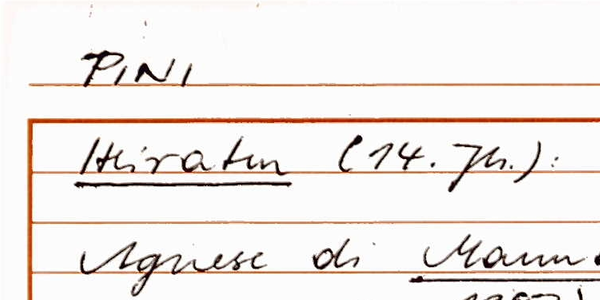 PINI
Heiraten (14. Jh.):
Agnese di